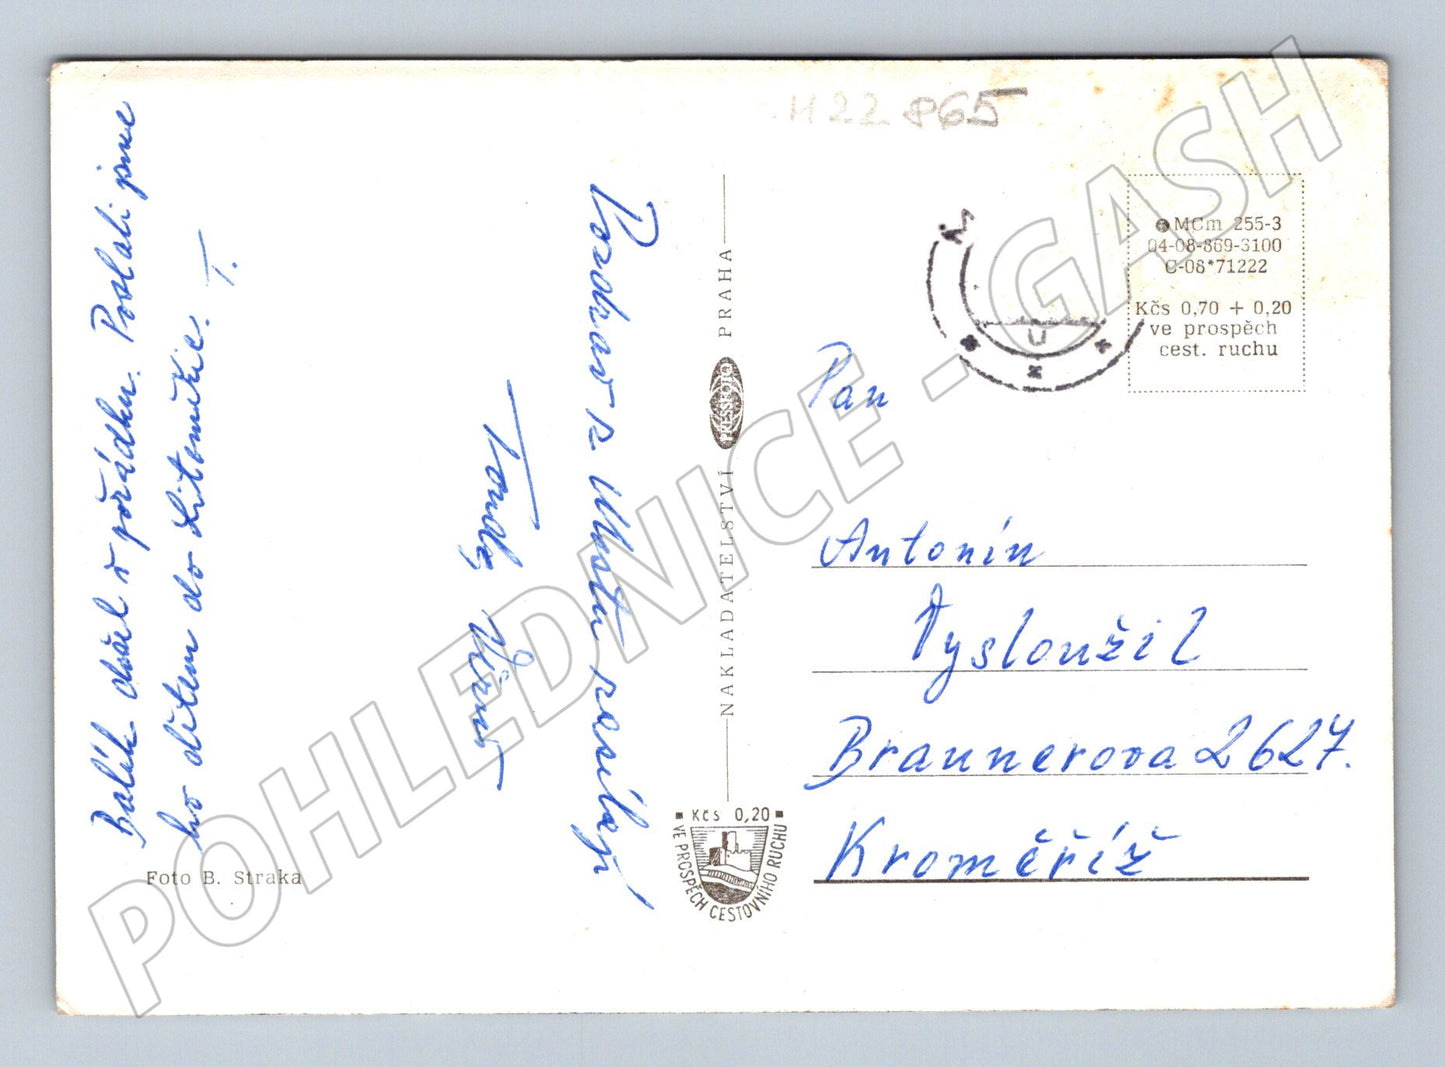 Balík došel v pořádku. Poslali jsme
ho dětem do Litoměřic. T.
Pozdrav z Mostu posílají
Foto B. Straka
NAKLADATELSTVÍ PRESSFOTO PRAHA
Kčs 0,20
VE PROSPĚCH CESTOVNÍHO RUCHU
H22 865
MCm 255-3
04-08-869-3100
C-08*71222
Kčs 0,70 + 0,20
ve prospěch
cest. ruchu
Pan
Antonín
Vysloužil
Braunerova 2627.
Kroměříž
POHLEDNICE - GASH